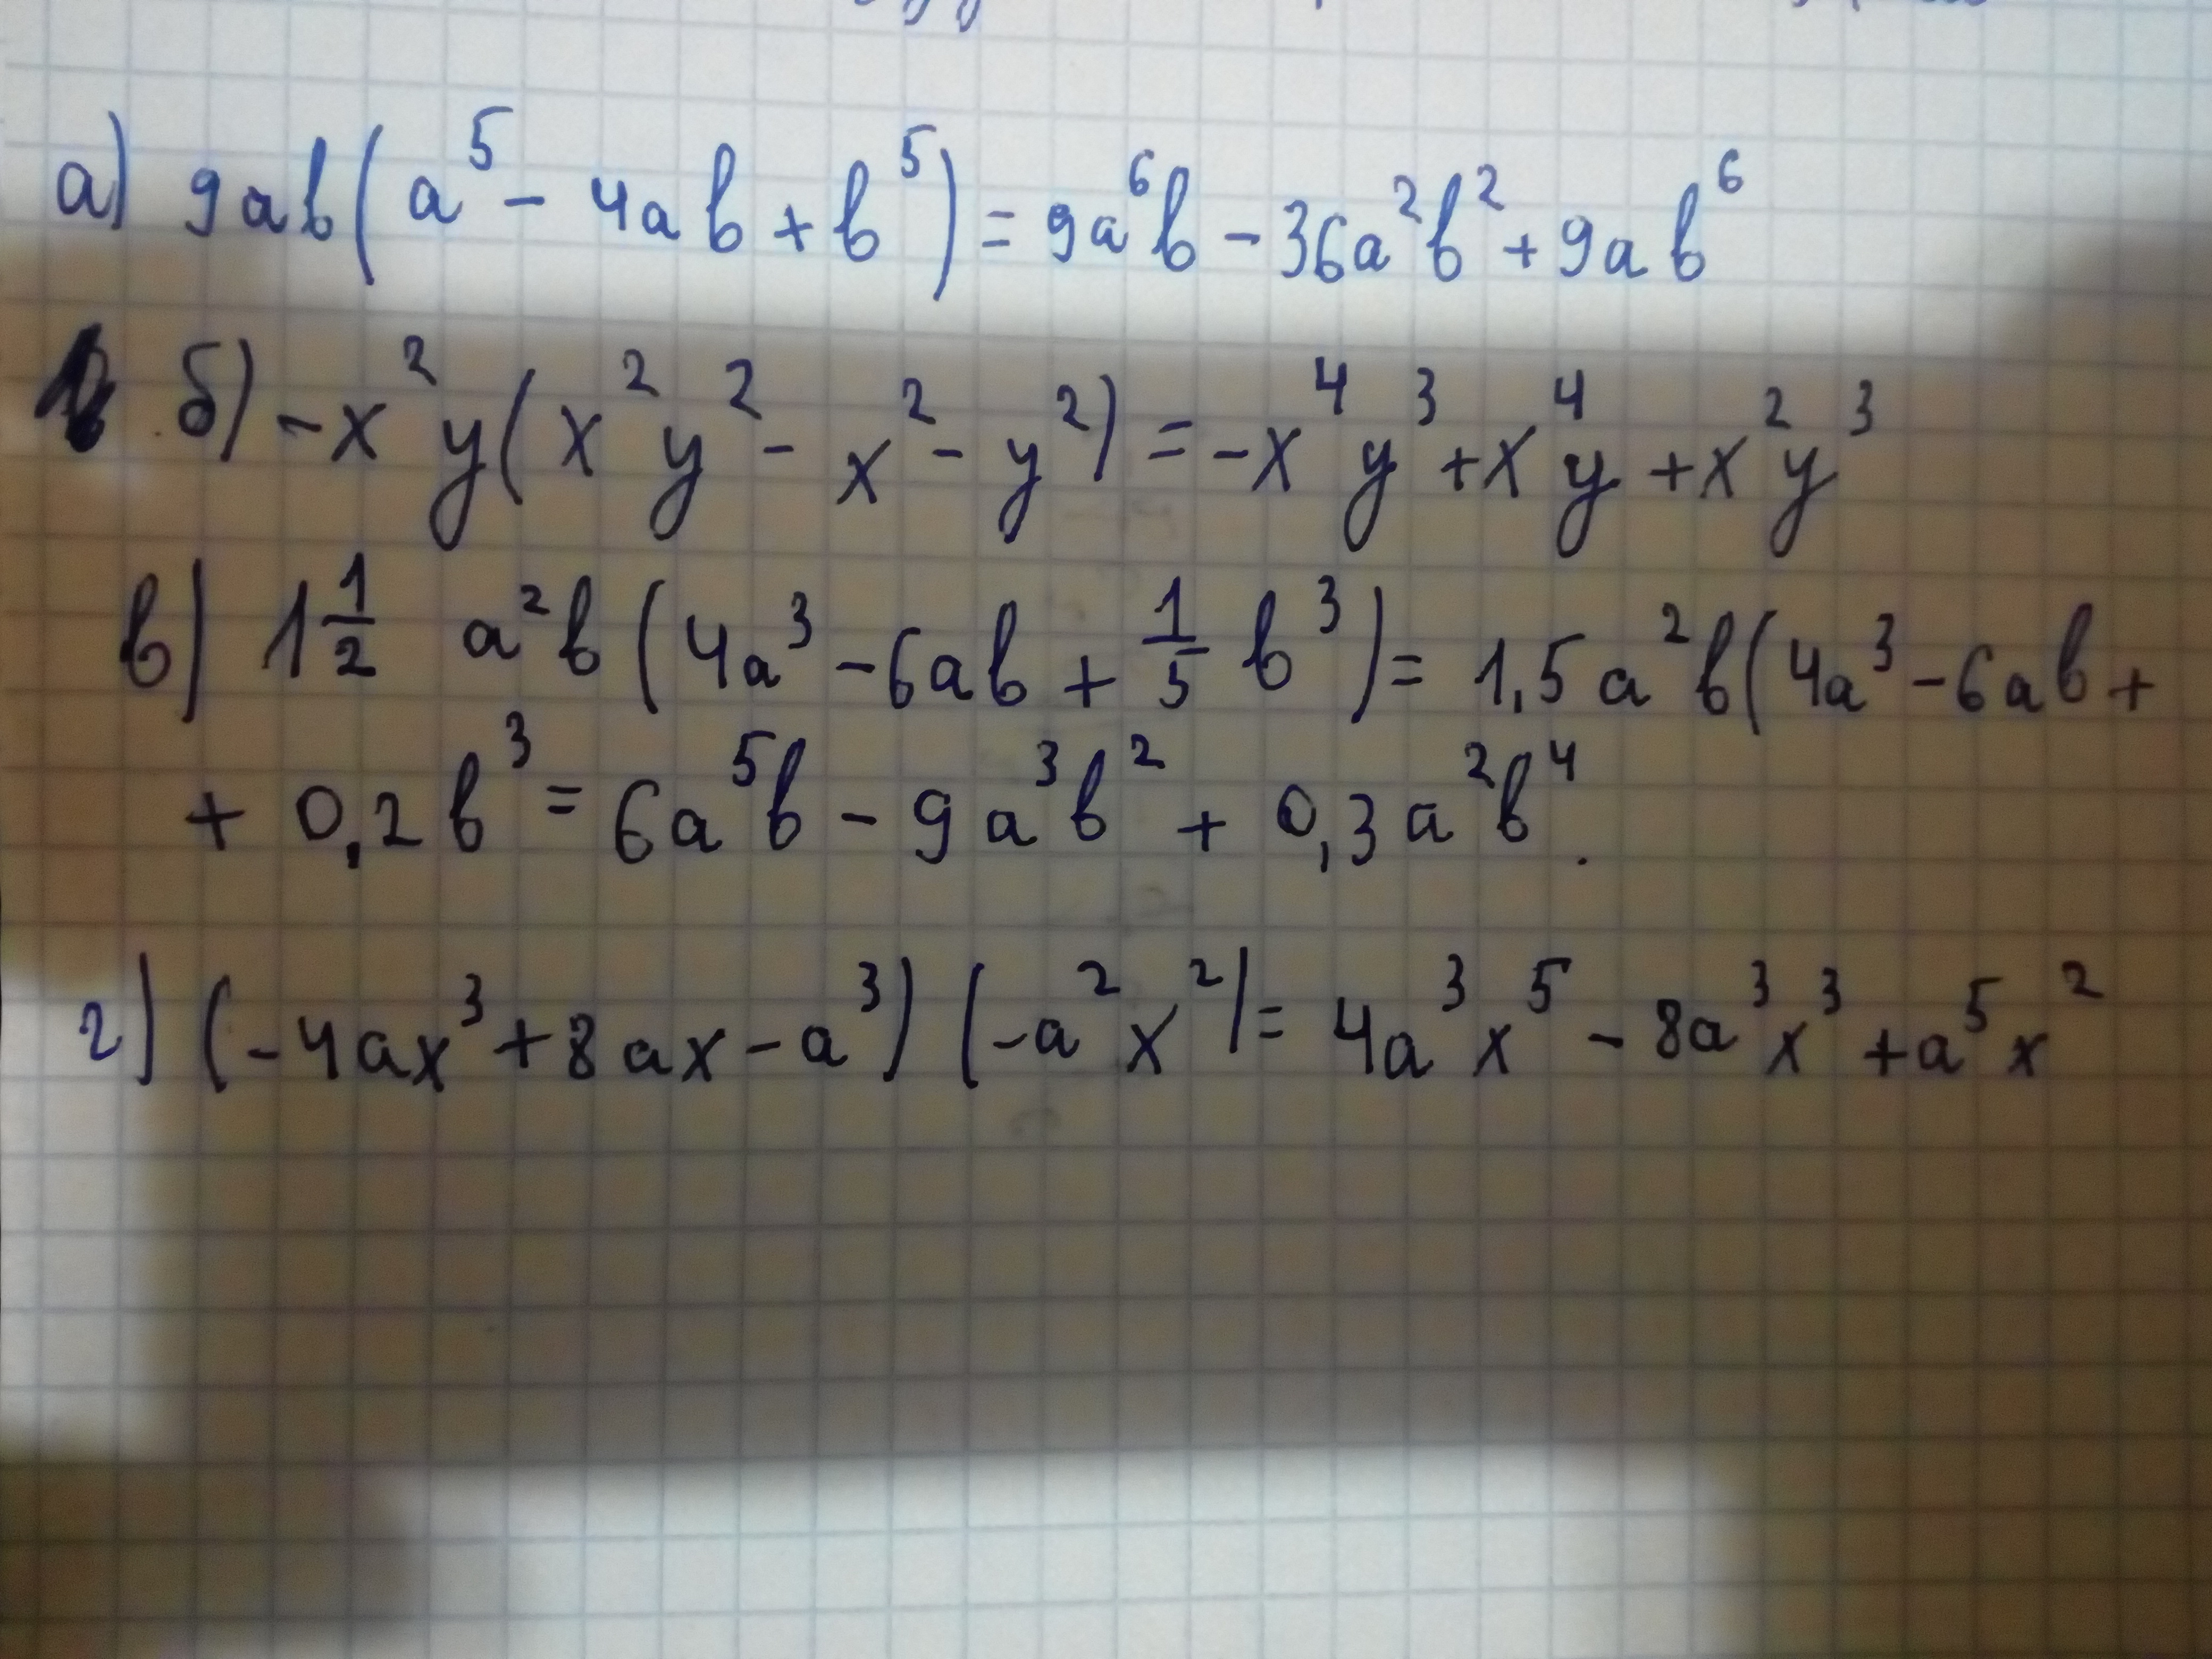 а) 9ab(a⁵ - 4ab + b⁵) = 9a⁶b - 36a²b² + 9ab⁶
б) -x²y(x²y² - x² - y²) = -x⁴y³ + x⁴y + x²y³
в) 1 1/2 a²b(4a³ - 6ab + 1/5 b³) = 1,5a²b(4a³ - 6ab +
+ 0,2b³ = 6a⁵b - 9a³b² + 0,3a²b⁴.
г) (-4ax³ + 8ax - a³)(-a²x²) = 4a³x⁵ - 8a³x³ + a⁵x²